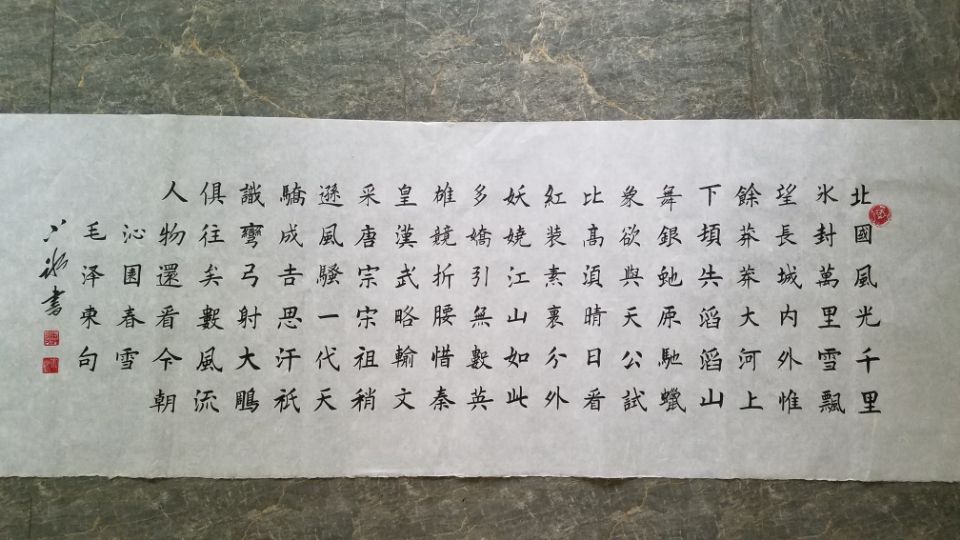 北國風光千里
氷封萬里雪飄
望長城内外惟
餘莽莽大河上
下頓失滔滔山
舞銀虵原馳蠟
象欲與天公試
比高湏晴日看
紅裝素裹分外
妖嬈江山如此
多嬌引無數英
雄競折腰惜秦
皇漢武略輸文
采唐宗宋祖稍
遜風騷一代天
驕成吉思汗祇
識彎弓射大鵰
俱往矣數風流
人物還看今朝
沁園春雪
毛泽東句
書